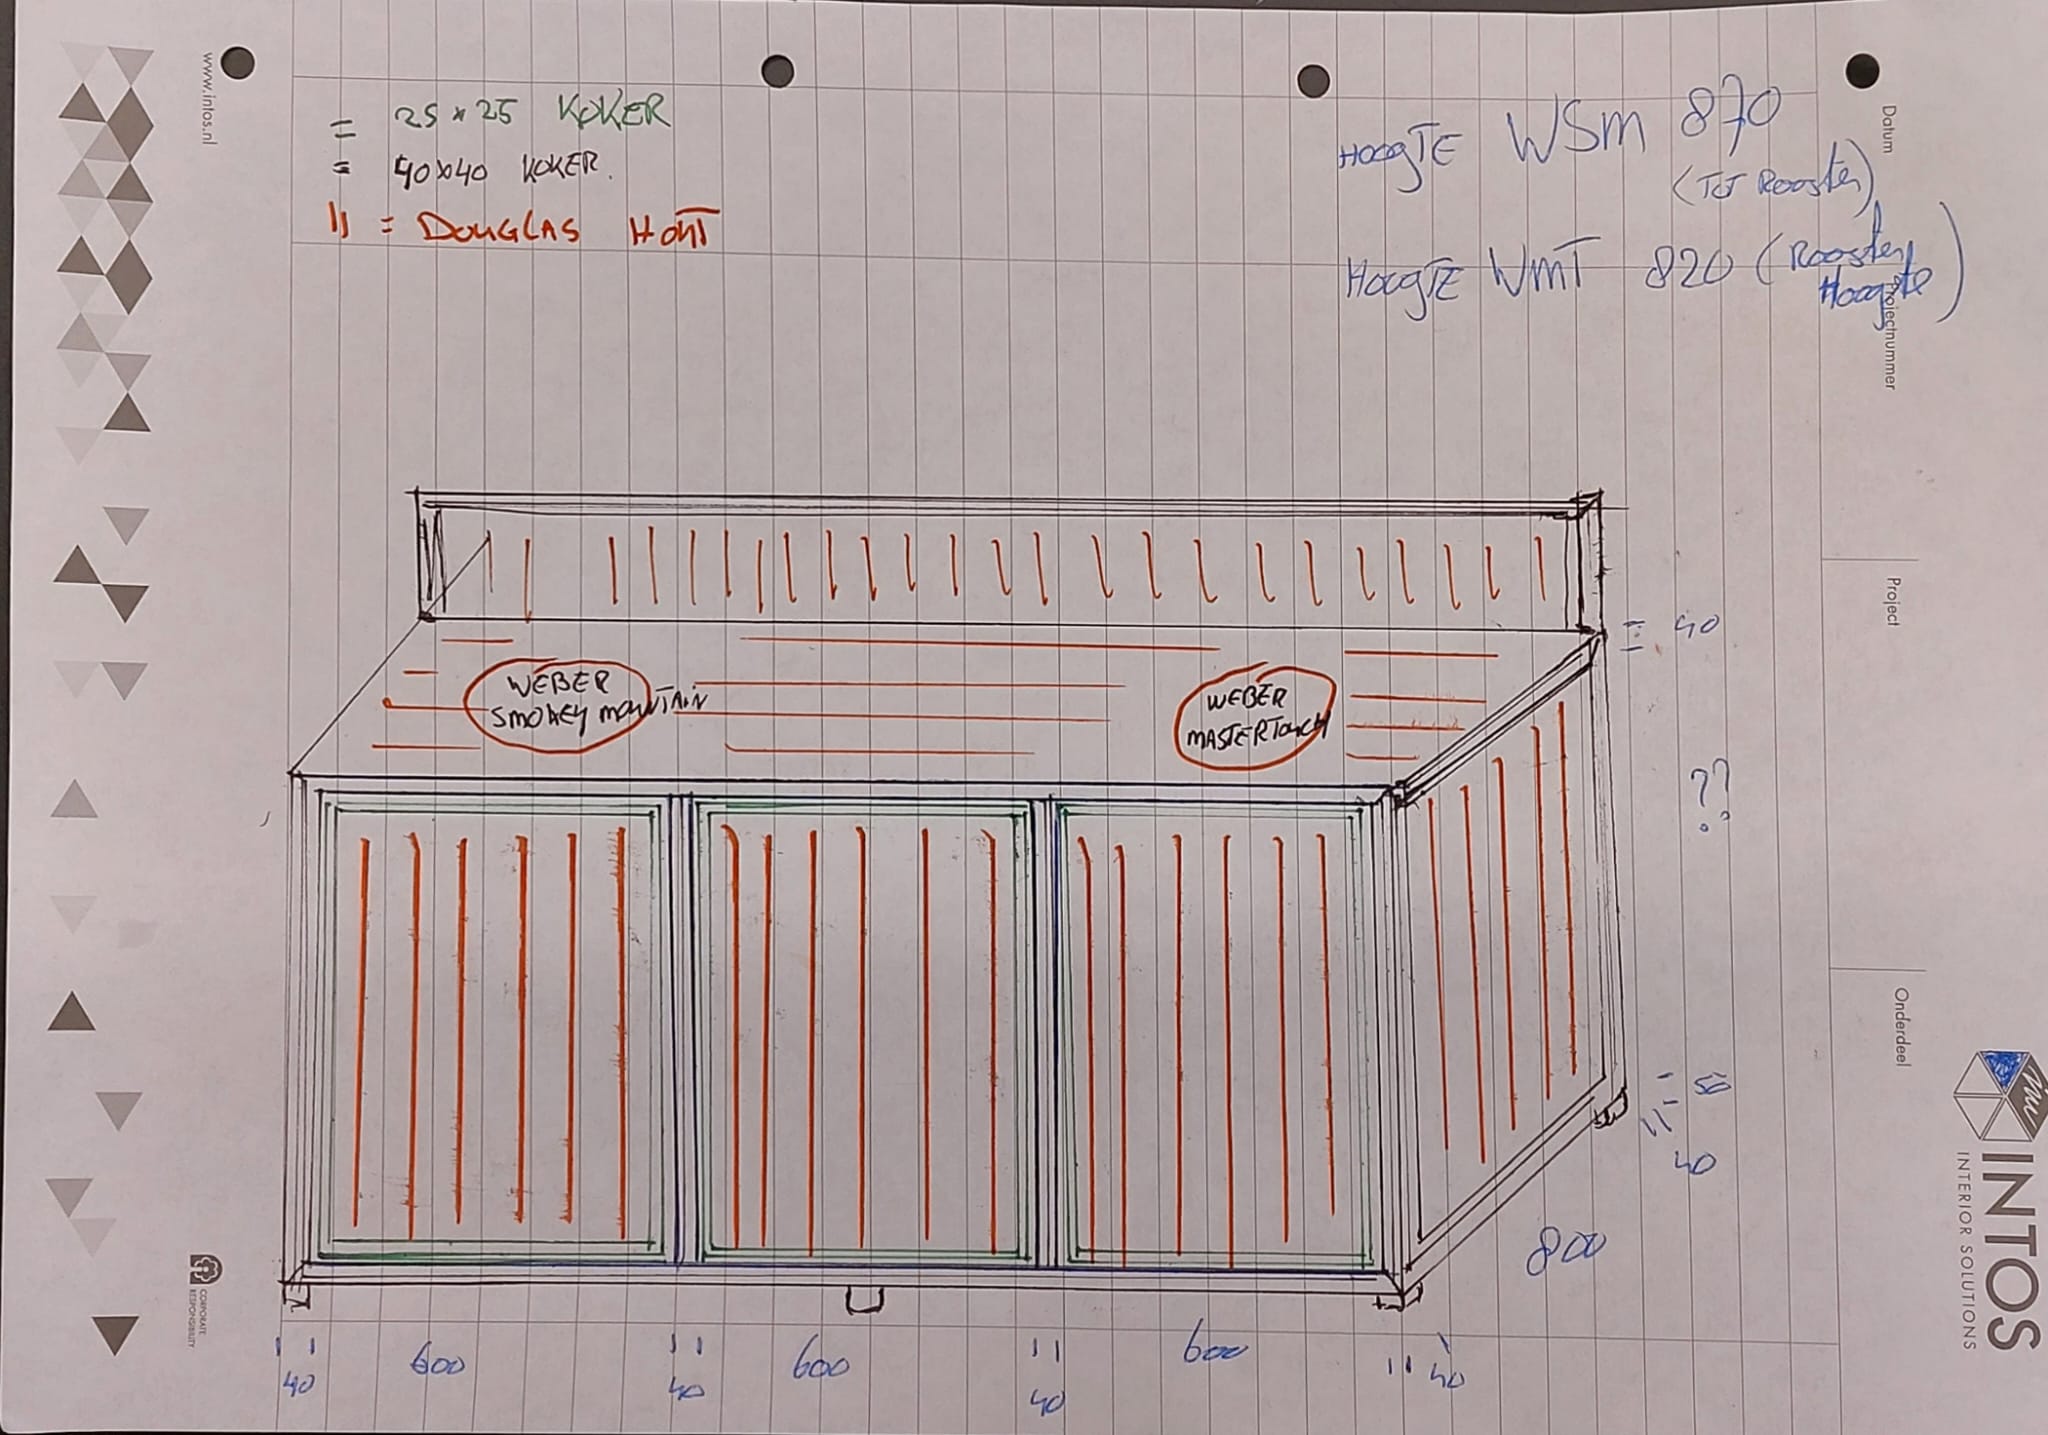 www.intos.nl
= 25 x 25 KOKER
= 40x40 KOKER.
= DOUGLAS HOUT
HoogTE WSM 870
(Tot Rooster)
HoogTE WMT 820 (Rooster
Hoogte)
Datum
Projectnummer
Project
Onderdeel
WEBER
SMOKEY MOUNTAIN
WEBER
MASTERTOUCH
40
??
50
40
800
40 600 40 600 40 600 40
INTOS
INTERIOR SOLUTIONS
CORPORATE
RESPONSIBILITY